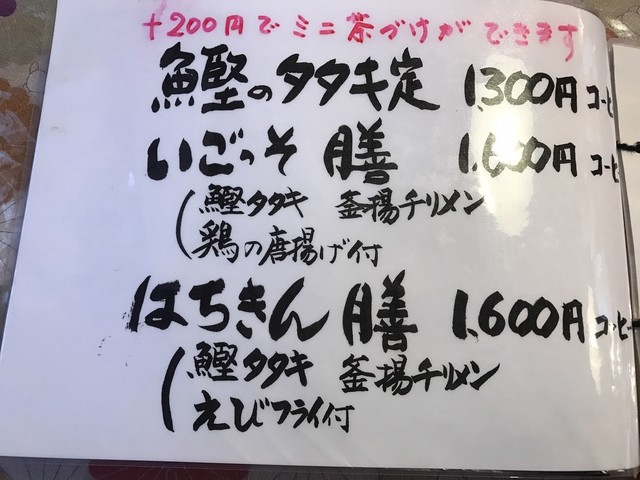 +200円でミニ茶づけができます
鰹のタタキ定 1,300円 コーヒ
いごっそ 膳 1,600円 コーヒ
鰹タタキ 釜揚チリメン
鶏の唐揚げ付
はちきん 膳 1,600円 コーヒー
鰹タタキ 釜揚チリメン
えびフライ付